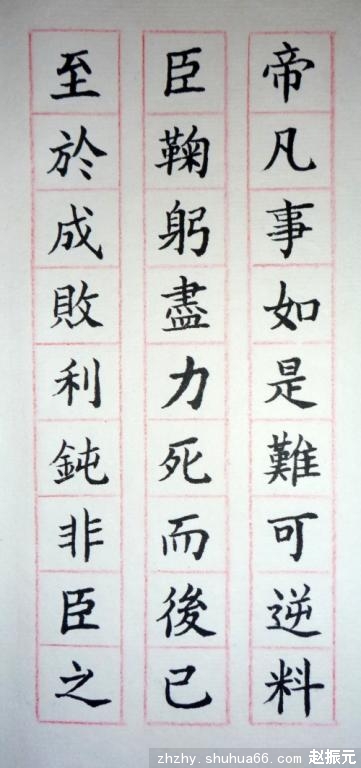 帝凡事如是難可逆料
臣鞠躬盡力死而後已
至於成敗利鈍非臣之
zhzhy.shuhua66.com 赵振元